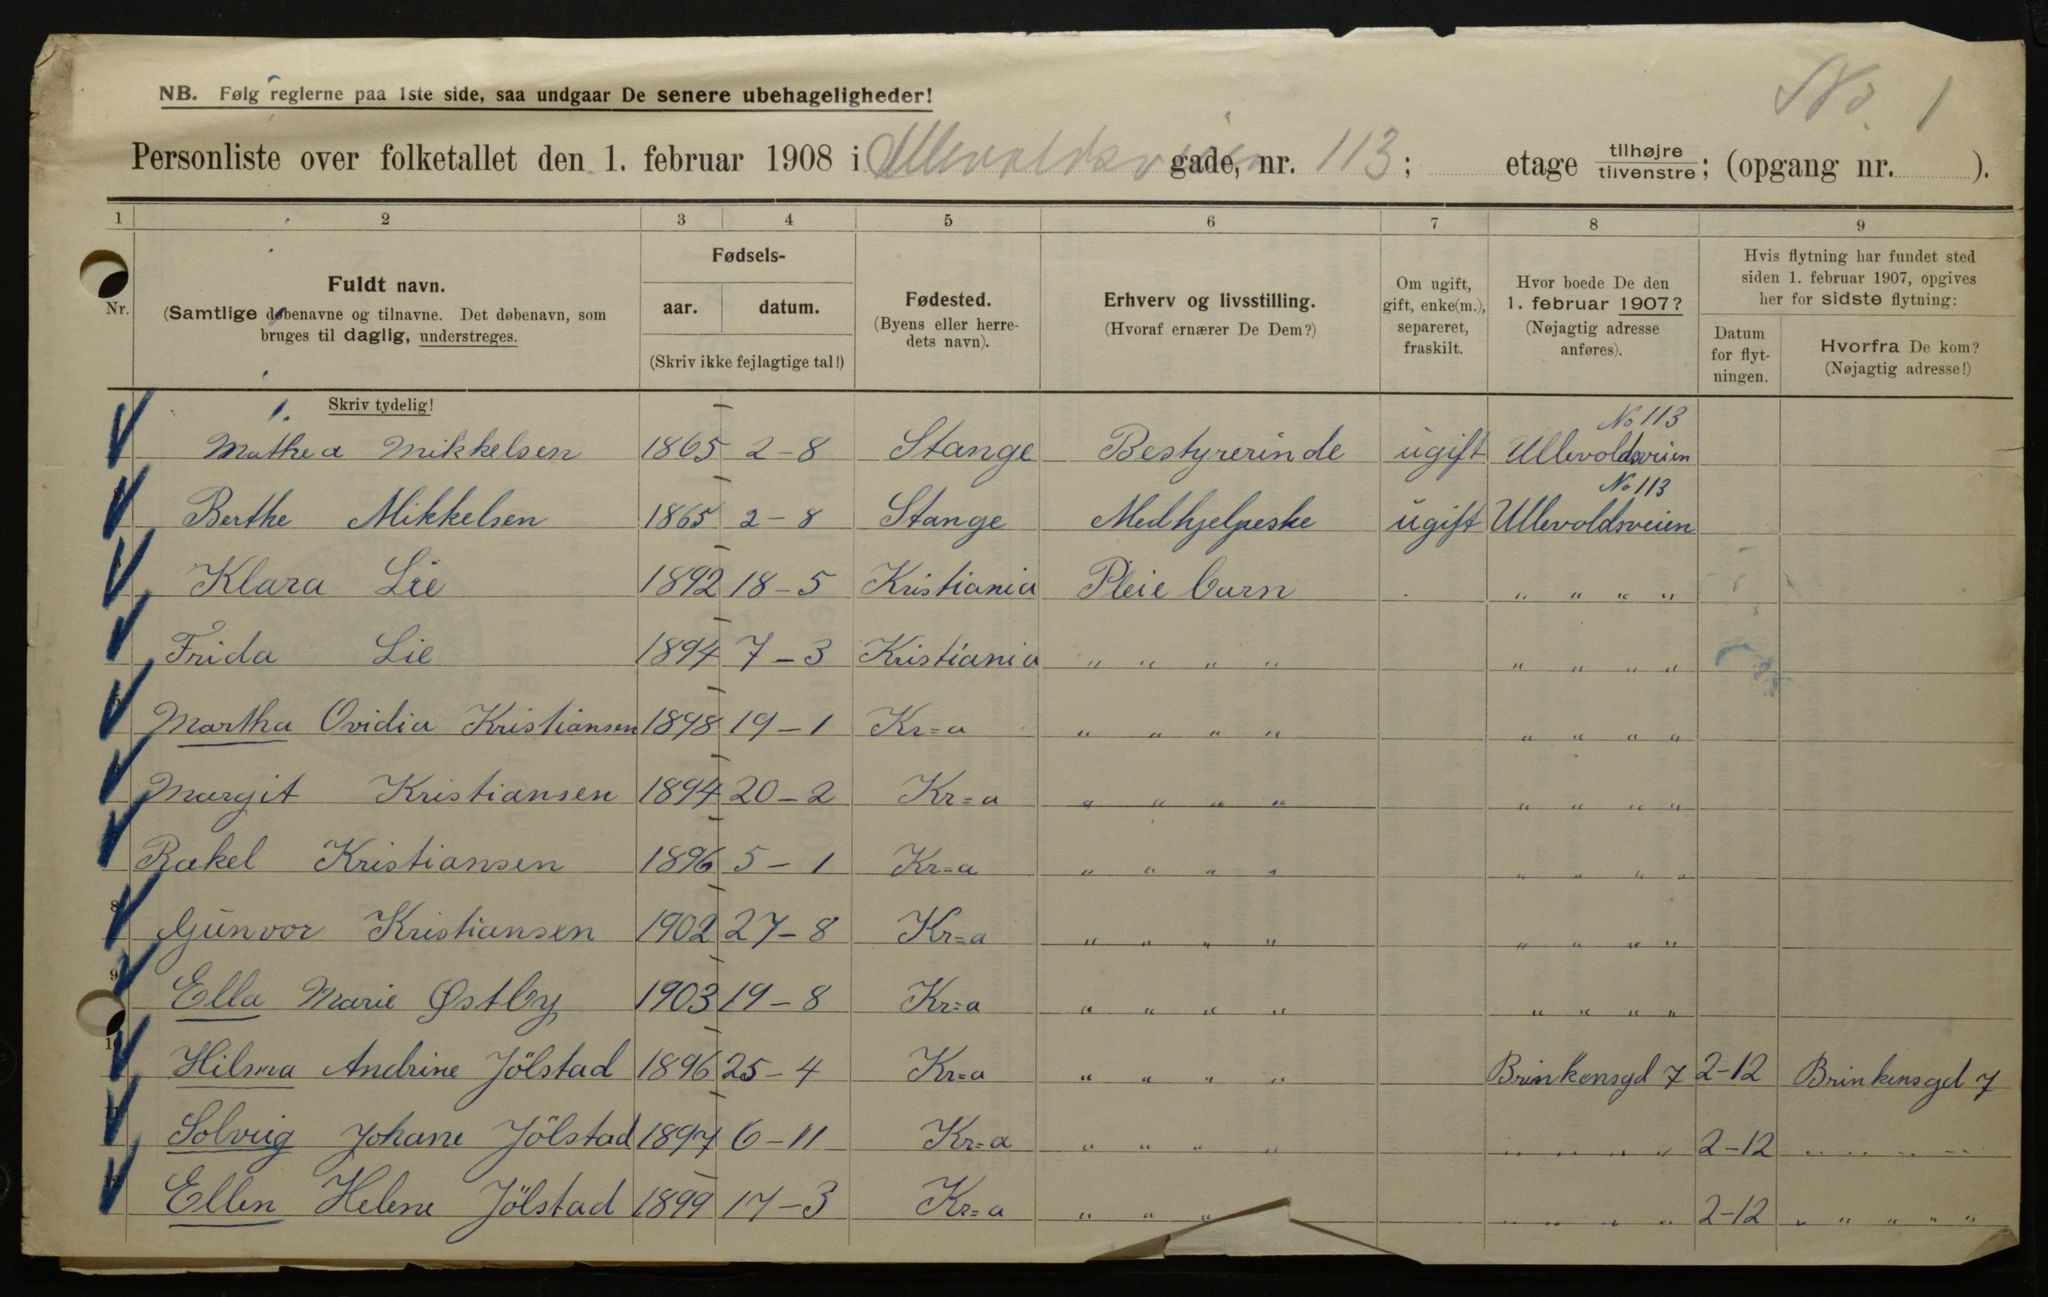 No. 1
NB. Følg reglerne paa 1ste side, saa undgaar De senere ubehageligheder!
Personliste over folketallet den 1. februar 1908 i Ullevoldsveien gade, nr. 113; etage tilhøjre tilvenstre; (opgang nr. ).
1 2 3 4 5 6 7 8 9
Nr.
Fuldt navn.
(Samtlige døbenavne og tilnavne. Det døbenavn, som
bruges til daglig, understreges.
Skriv tydelig!
Fødsels-
aar. datum.
(Skriv ikke fejlagtige tal!)
Fødested.
(Byens eller herre-
dets navn).
Erhverv og livsstilling.
(Hvoraf ernærer De Dem?)
Om ugift,
gift, enke(m.),
separeret,
fraskilt.
Hvor boede De den
1. februar 1907?
(Nøjagtig adresse
anføres).
Hvis flytning har fundet sted
siden 1. februar 1907, opgives
her for sidste flytning:
Datum
for flyt-
ningen.
Hvorfra De kom?
(Nøjagtig adresse!)
No 113
Mathea Mikkelsen 1865 2-8 Stange Bestyrerinde ugift Ullevoldsveien
No 113
Berthe Mikkelsen 1865 2-8 Stange Medhjelpeske ugift Ullevoldsveien
Klara Lie 1892 18-5 Kristiania Pleie barn " " " "
Frida Lie 1894 7-3 Kristiania " " " " " " " "
5 Martha Ovidia Kristiansen 1898 19-1 Kr=a " " " " " " " "
Margit Kristiansen 1894 20-2 Kr=a " " " " " " " "
Rakel Kristiansen 1896 5-1 Kr=a " " " " " " " "
8 Gunvor Kristiansen 1902 27-8 Kr=a " " " " " " " "
9 Ella Marie Østby 1903 19-8 Kr=a " " " " " " " "
10 Hilma Andrine Jölstad 1896 25-4 Kr=a " " " " Brinkensgd 7 2-12 Brinkensgd 7
11 Solveig Johane Jölstad 1897 6-11 Kr=a " " " " " " " " 2-12 " " " "
12 Ellen Helene Jölstad 1899 17-3 Kr=a " " " " " " " 2-12 " " " " "